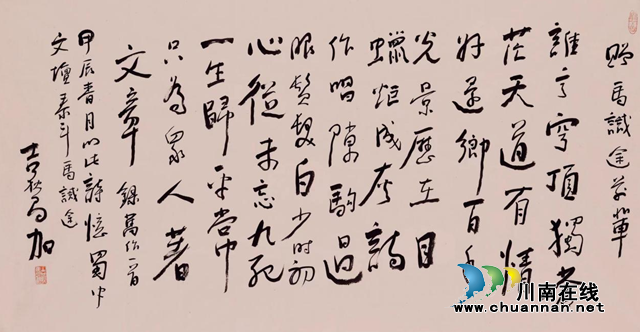 贈馬識途前輩
誰言穹頂獨蒼
茫天道有情
好還鄉百年
光景歷在目
蠟炬成灰詩
作唱隙駒過
眼鬢髮白少時初
心從未忘九死
一生歸平常中
只為眾人著
文章 錄舊作一首
甲辰春月以此詩憶蜀中
文壇泰斗馬識途
吉狄馬加
川南在线
www.chuannan.net